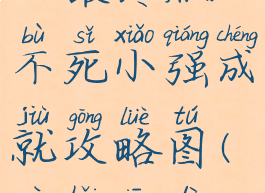 bù sǐ xiǎo qiáng chéng
不死小强成
jiù gōng lüè tú
就攻略图(